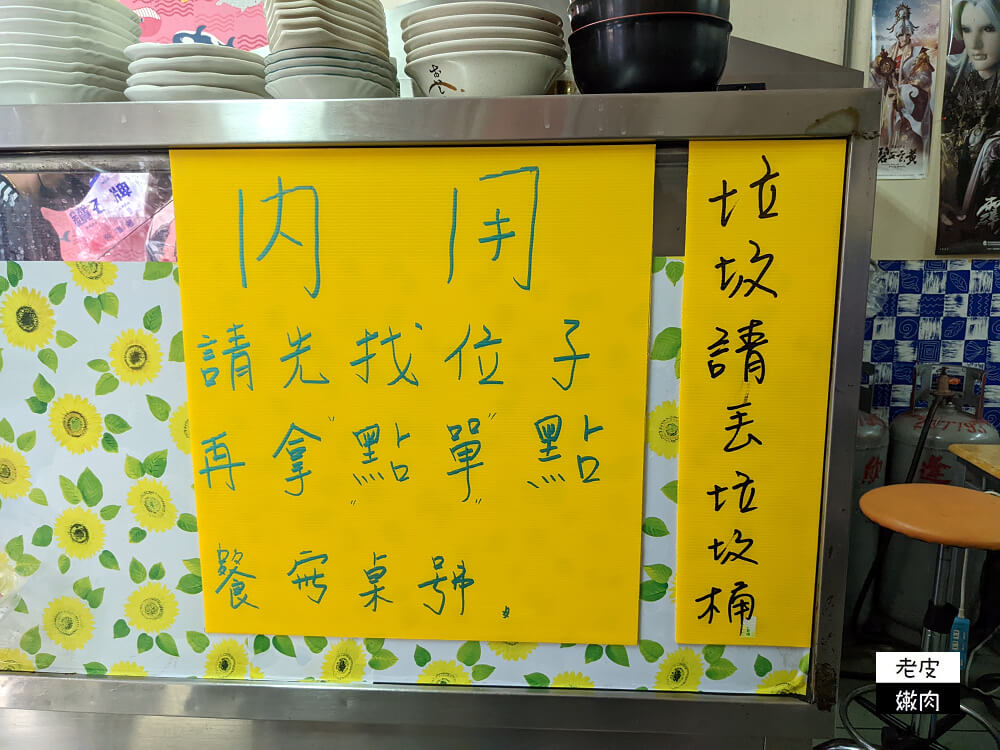 內用
請先找位子
再拿"點單"點
餐寫桌號。
垃圾請丟垃圾桶
老皮
嫩肉